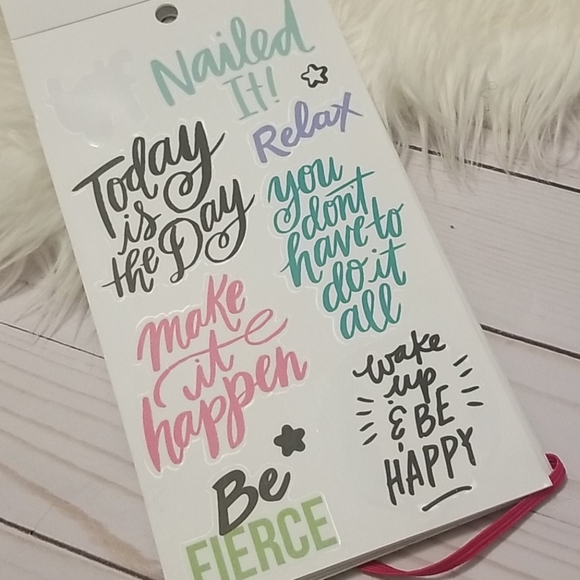 Nailed
It!
Relax
Today
is
the Day
you
dont
have to
do it
all
make
it
happen
wake
up
& BE
HAPPY
Be
FIERCE